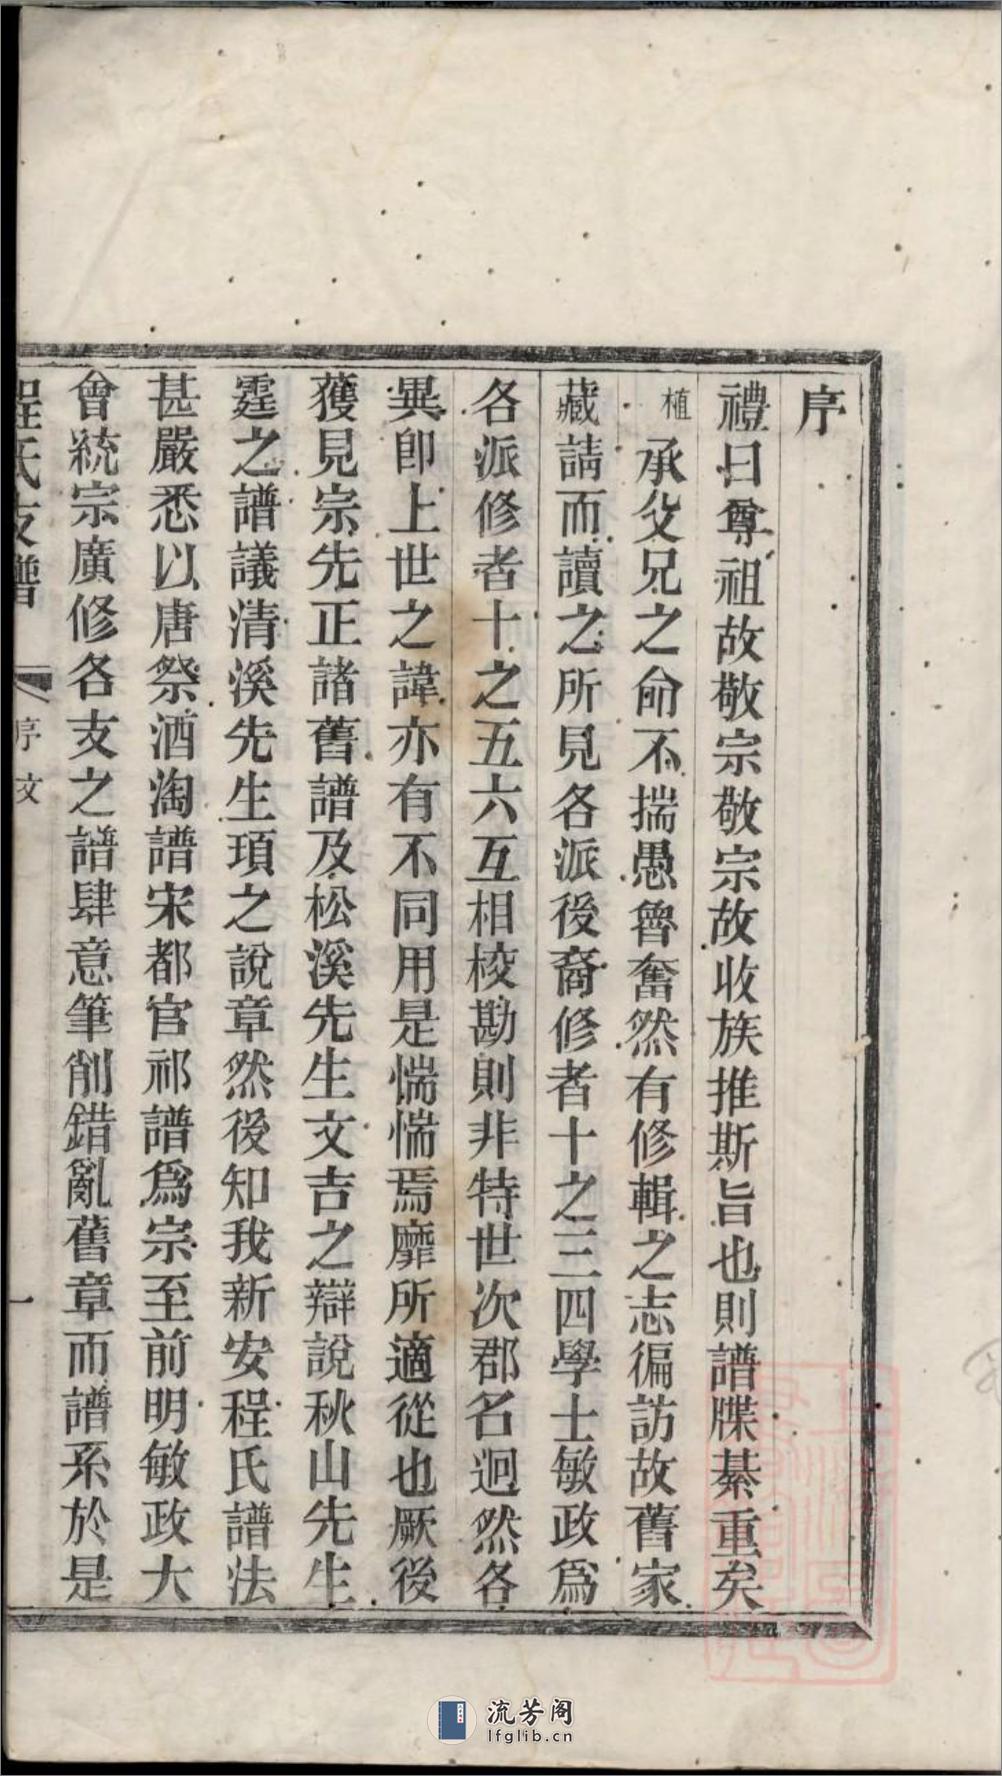 序
禮曰尊祖故敬宗敬宗故收族推斯旨也則譜牒綦重矣
植承父兄之命不揣愚魯奮然有修輯之志徧訪故舊家
藏請而讀之所見各派後裔修者十之三四學士敏政爲
各派修者十之五六互相校勘則非特世次郡名迥然各
異卽上世之諱亦有不同用是惴惴焉靡所適從也厥後
獲見宗先正諸舊譜及松溪先生文吉之辯說秋山先生
霆之譜議清溪先生項之說章然後知我新安程氏譜法
甚嚴悉以唐祭酒淘譜宋都官祁譜爲宗至前明敏政大
會統宗廣修各支之譜肆意筆削錯亂舊章而譜系於是
程氏支譜
序文
一
流芳阁
lfglib.cn